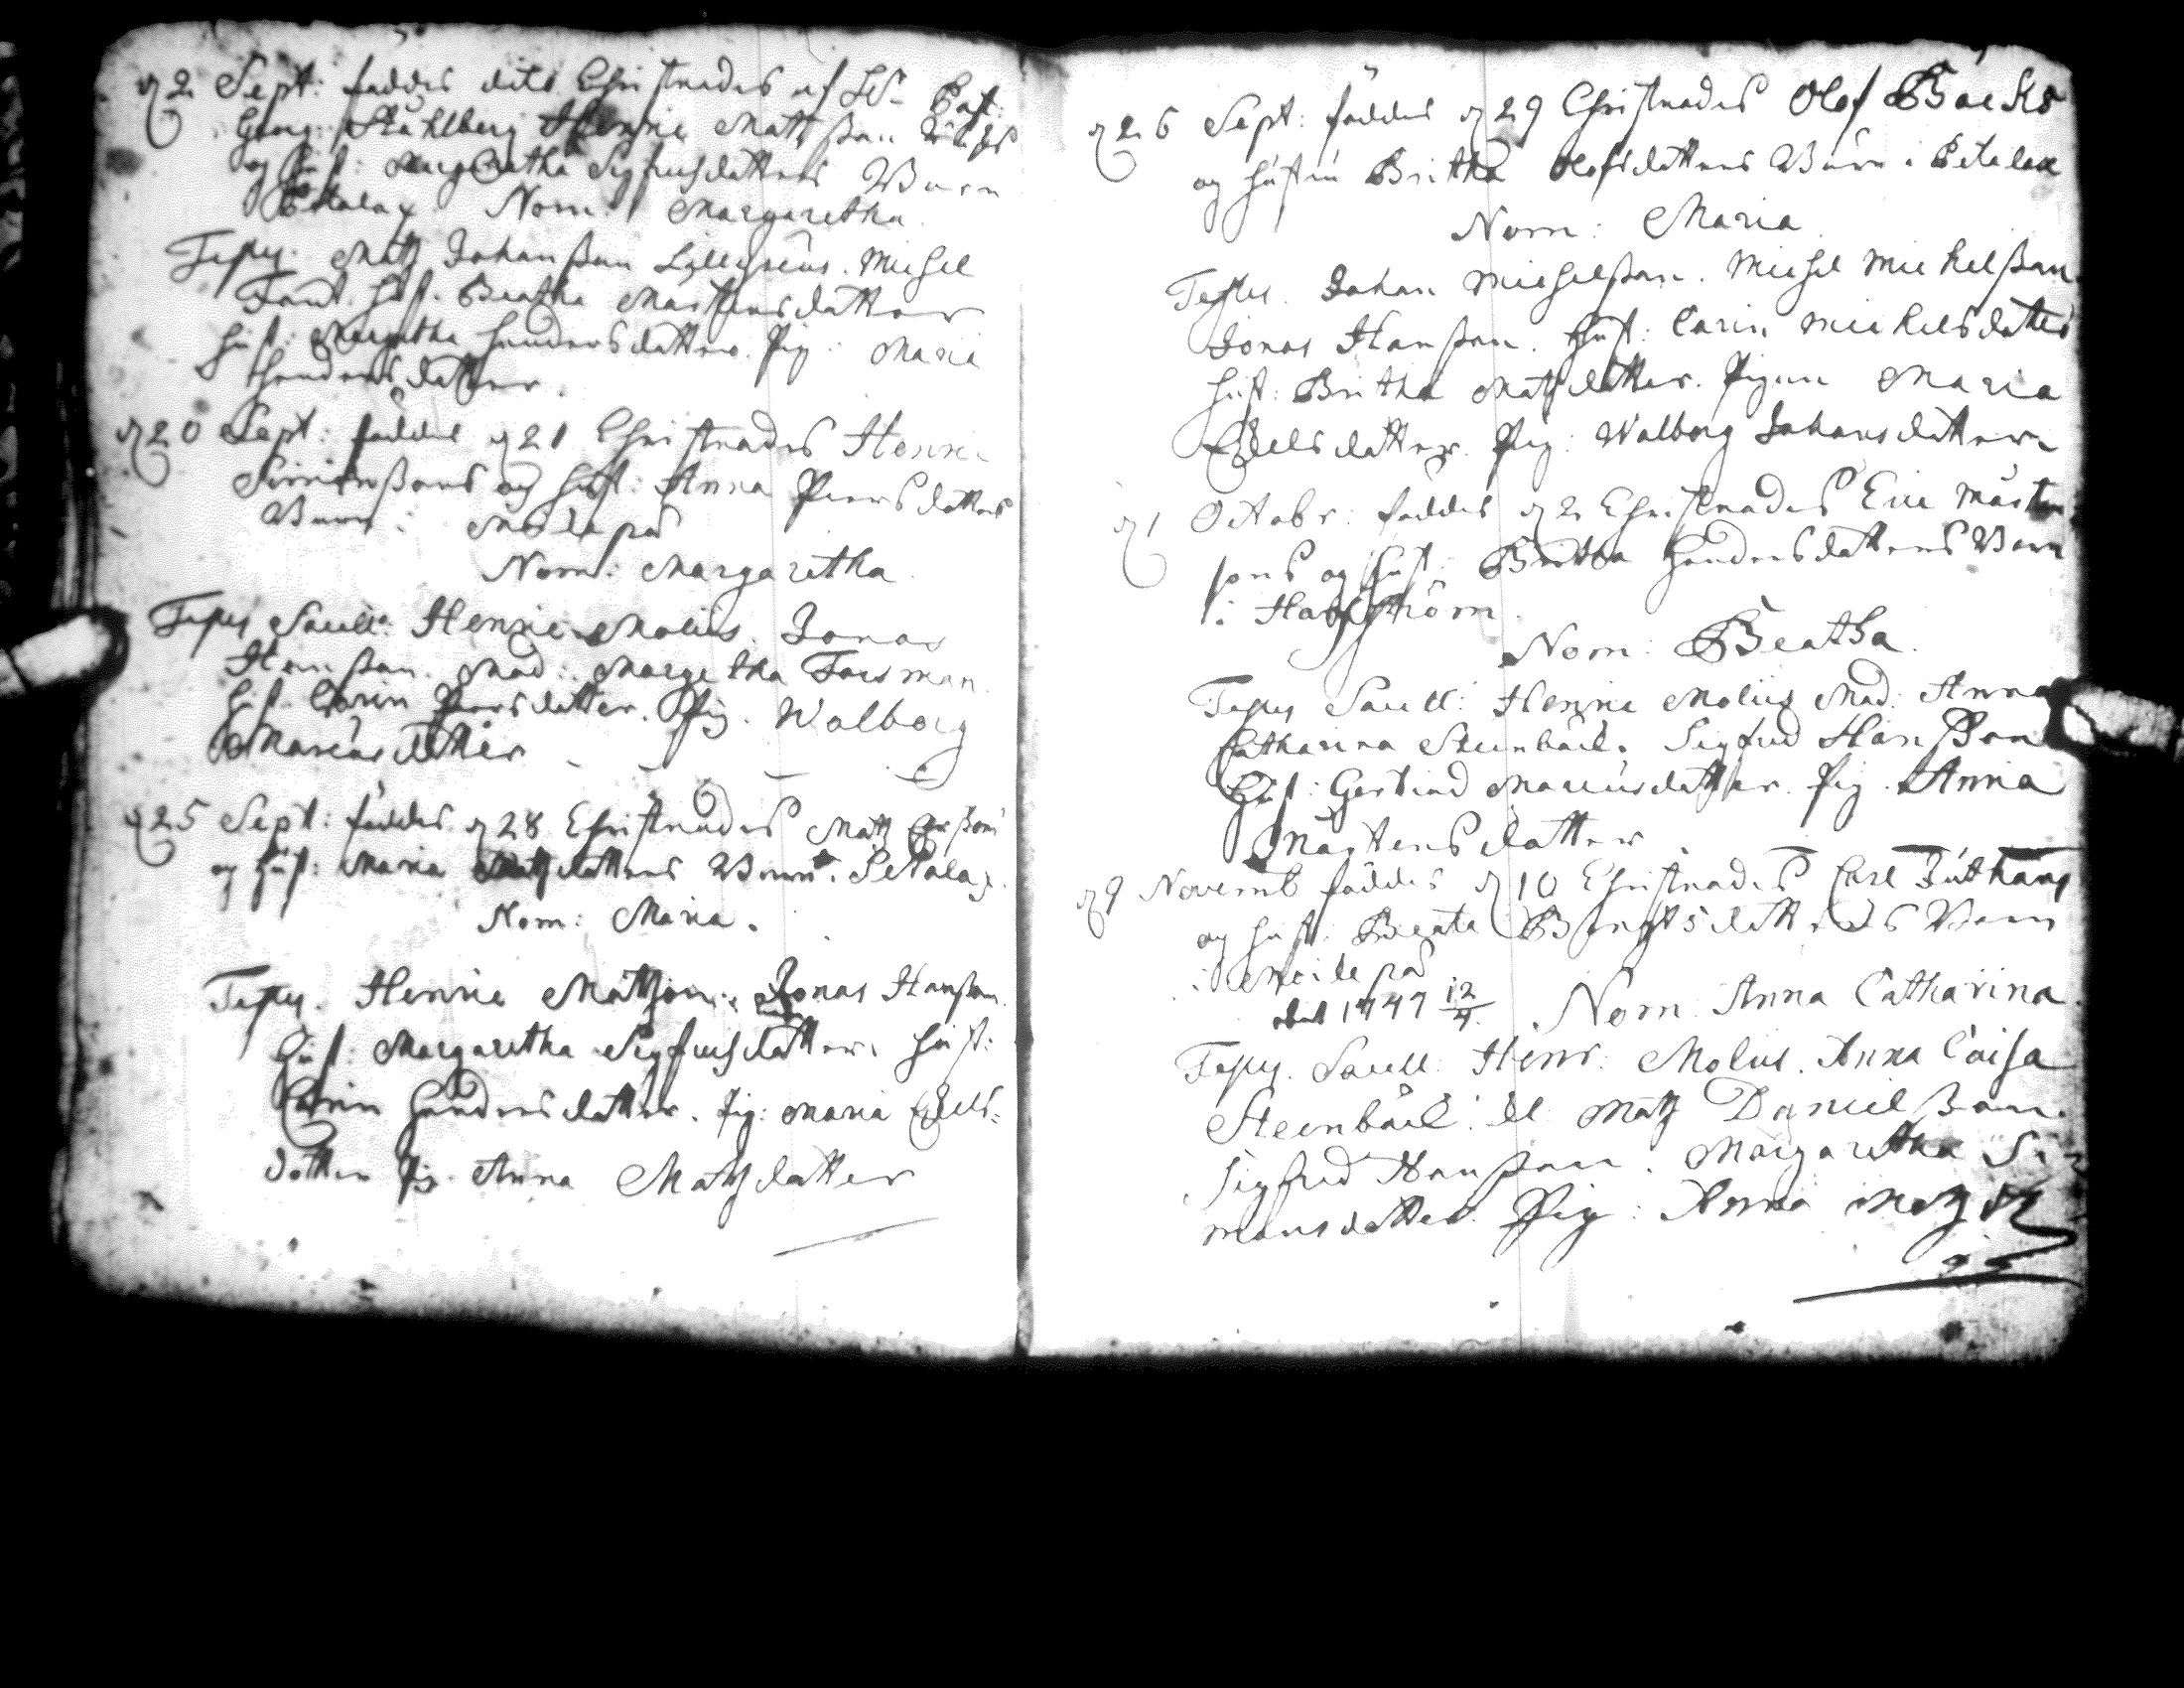 d 2 Sept: föddes dito Christnades af H:r Past:
Georg: Ståhlberg Henric Mattssan
og hust: Margaretha Sigfredsdatters Barn
Petalax Nom: Margaretha.
Testes. Matz Johansson Lillgreus. Michel
Fant. hust. Beatha Mårtensdatter
hust: Margetha Hendersdatter. Pig: Maria
Hendersdatter.
d 20 Sept: föddes d 21 Christnades Henric
Simonssons og hust: Anna Persdatters
Barn: Nom: Margaretha
Testes Sacell: Henric Molius. Jonas
Hansson. Mad: Margetha Forsman.
hust. Carin Persdatter. Pig. Walborg
Marcusdatter
d 25 Sept: föddes d 28 Christnades Matz Erssons
og hust: Maria Matzdatters Barn i Petalax.
Nom: Maria.
Testes. Henric Matzson. Jonas Hansson.
hust: Margaretha Sigfredsdatter. hust:
Carin Hendersdatter. Pig: Maria Eels-
datter Pig. Anna Matzdatter
d 26 Sept: föddes d 29 Christnades Olof Bäcks
og hustru Britha Olofsdatters Barn i Petalax
Nom: Maria
Testes. Johan Michelsson. Michel Michelsson
Jonas Hansson. Hust: Carin Michelsdatter
hust: Britha Matzdatter. Pigan Maria
Eelsdatter. Pig: Walborg Johansdatter
d 1 Octobr: föddes d 2 Christnades Eric Mårten
sons og hust: Britha Hendersdatters Barn
i Hafström.
Nom: Beatha.
Testes Sacell: Henric Molius Mad: Anna
Catharina Steenbäck. Sigfred Hansson
Hust: Gertrud Marcusdatter. Pig. Anna
Mårtensdatter.
d 9 Novemb föddes d 10 Christnades Carl
og hust: Beata Bengtsdatters Barn
obiit 1747 12/4. Nom: Anna Catharina
Testes. Sacell: Henr: Molius. Anna Caisa
Steenbäck. Matz Danielsson.
Sigfred Hansson. Margaretha Si
monsdatter. Pig: Anna Matzd